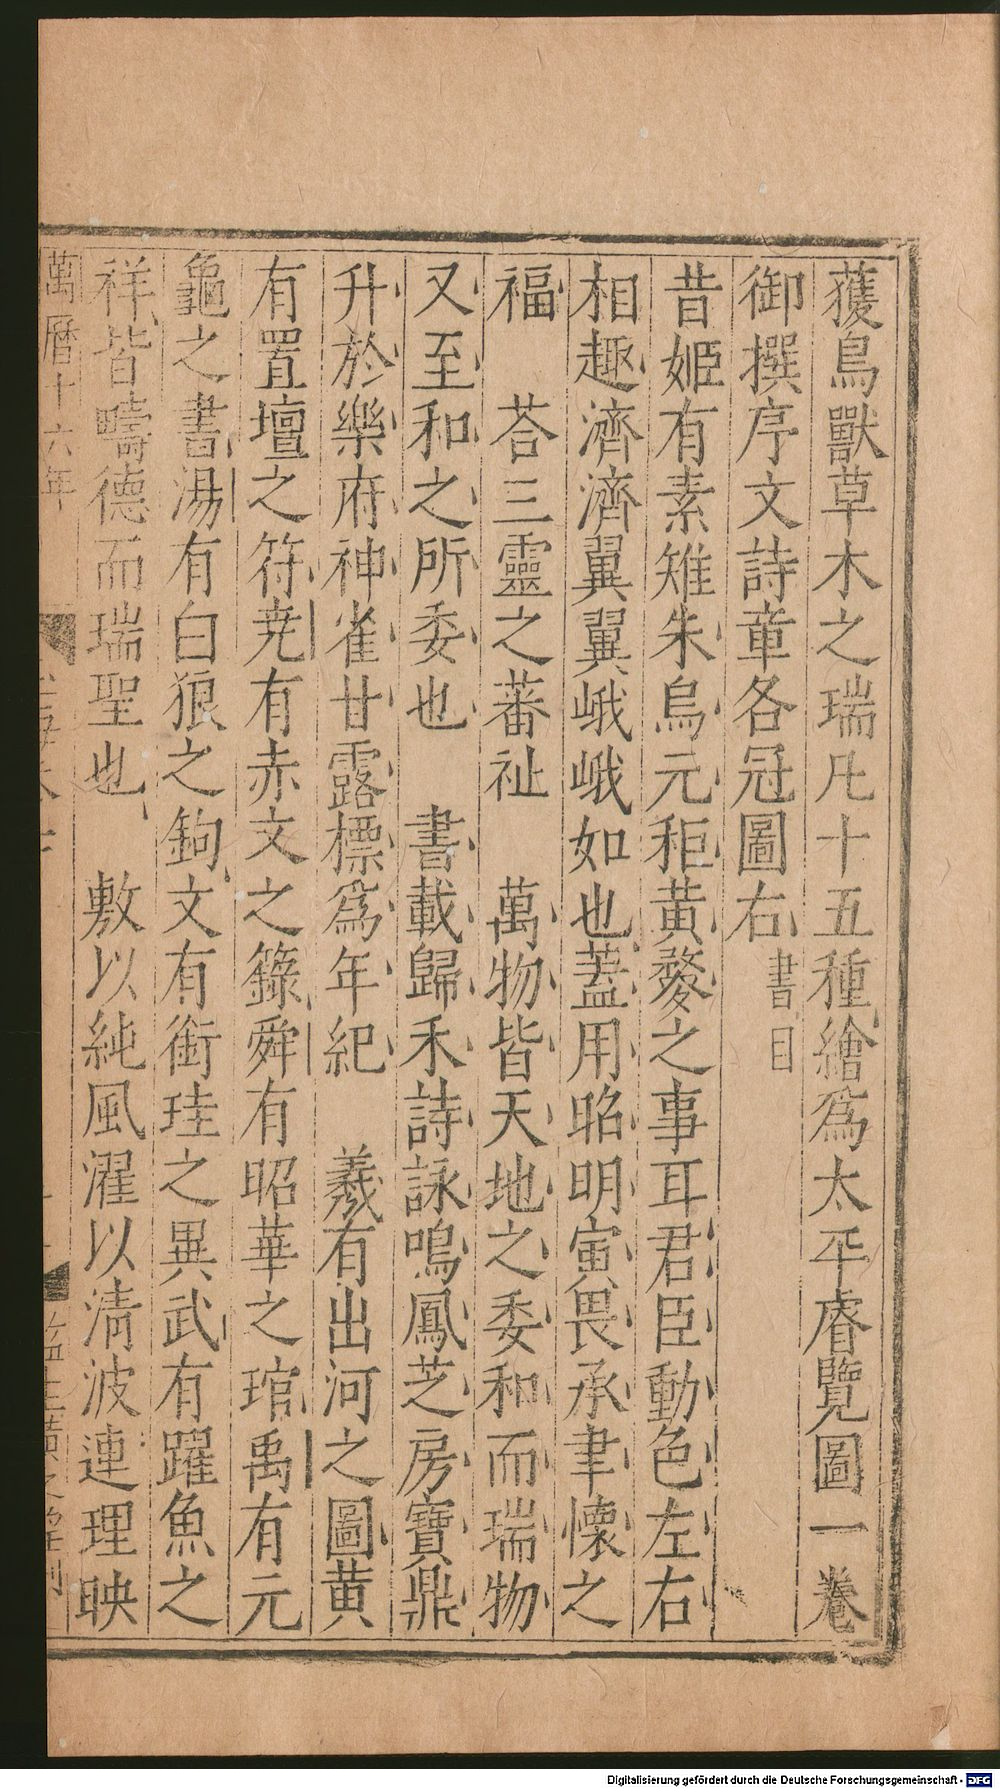 獲鳥獸草木之瑞凡十五種繪爲太平睿覽圖一卷
御撰序文詩章各冠圖右書目
昔姬有素雉朱烏元秬黃麰之事耳君臣動色左右
相趣濟濟翼翼峨峨如也蓋用昭明寅畏承聿懷之
福　荅三靈之蕃祉　萬物皆天地之委和而瑞物
又至和之所委也　書載歸禾詩詠鳴鳳芝房寶鼎
升於樂府神雀甘露標爲年紀　羲有出河之圖黃
有置壇之符尭有赤文之籙舜有昭華之琯禹有元
龜之書湯有白狼之鉤文有銜珪之異武有躍魚之
祥皆疇德而瑞聖也　敷以純風濯以淸波連理映
萬曆十六年
Digitalisierung gefördert durch die Deutsche Forschungsgemeinschaft - DFG